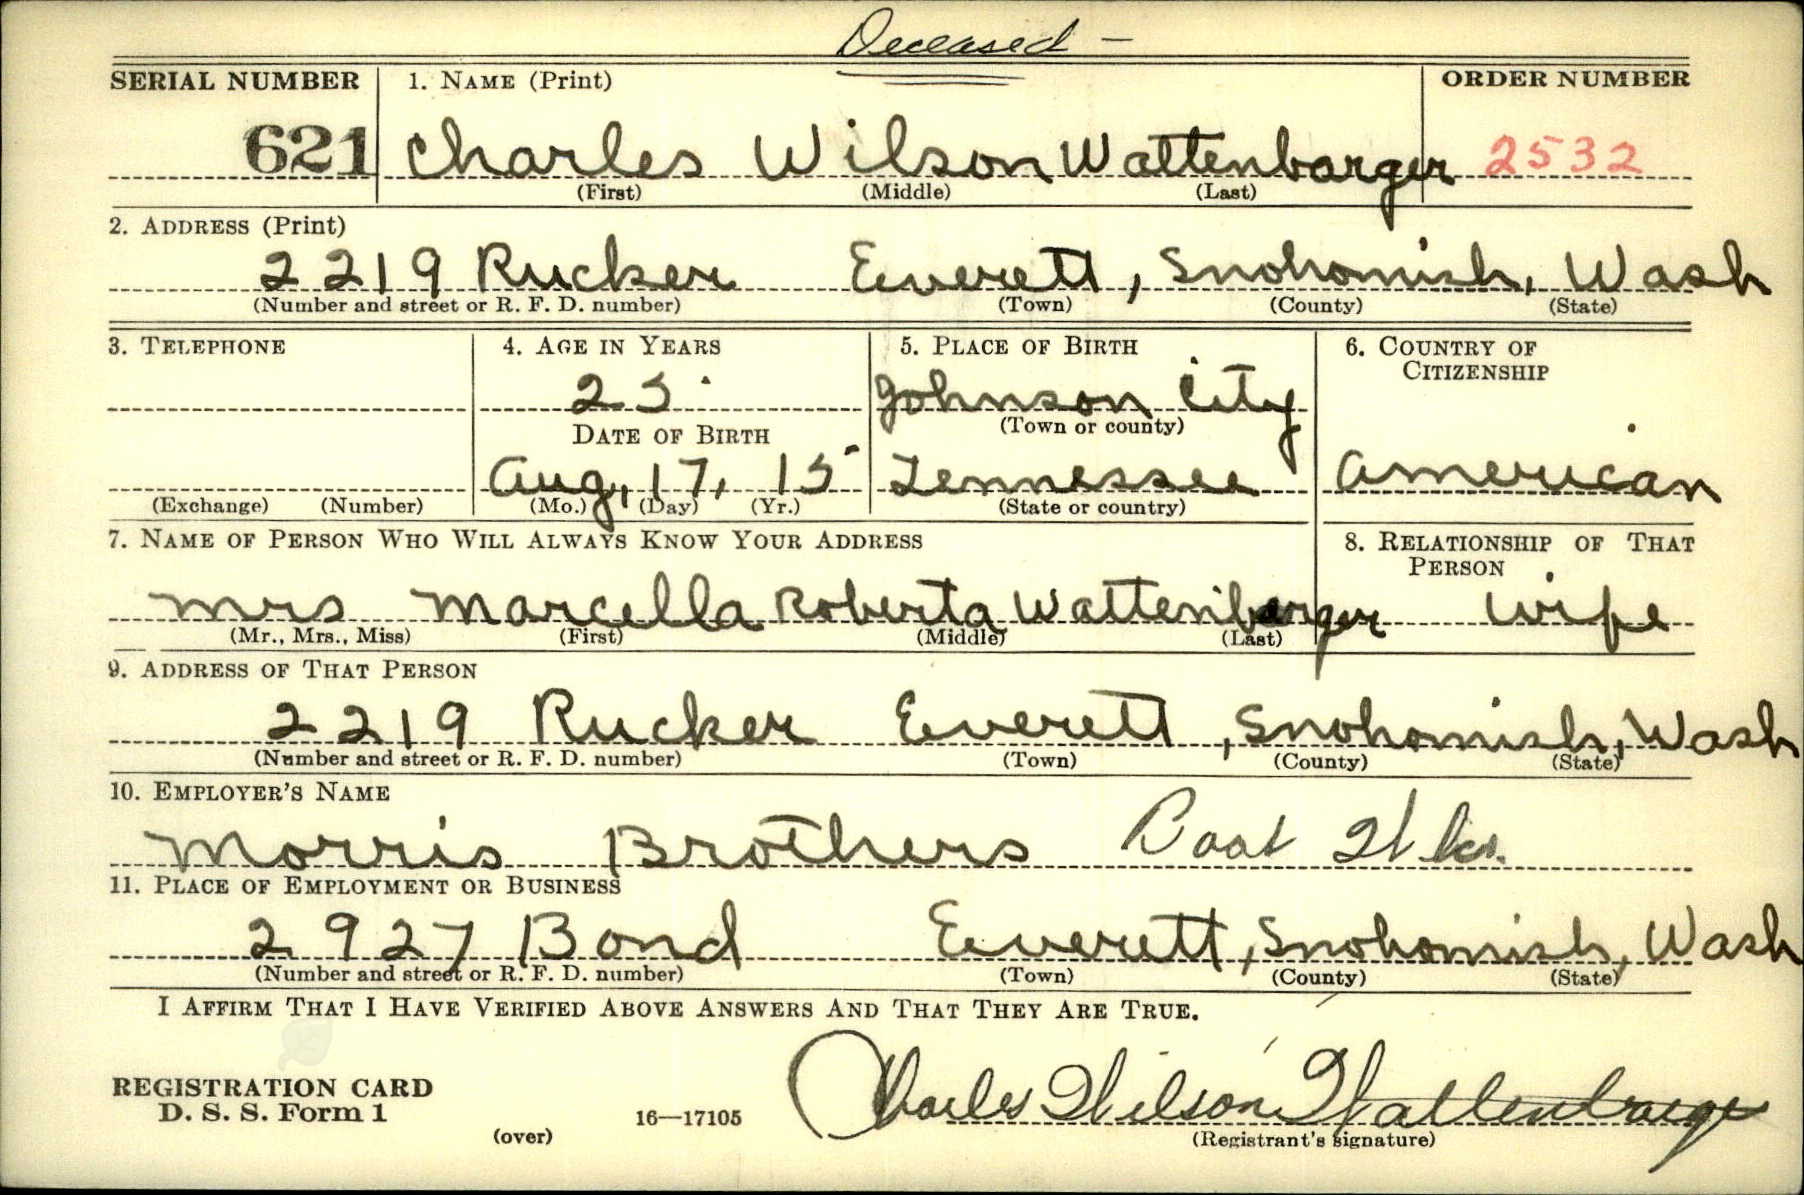 Deceased —
SERIAL NUMBER 1. NAME (Print) ORDER NUMBER
621 Charles Wilson Wattenbarger 2532
(First) (Middle) (Last)
2. ADDRESS (Print)
2219 Rucker Everett, Snohomish, Wash
(Number and street or R. F. D. number) (Town) (County) (State)
3. TELEPHONE 4. AGE IN YEARS 5. PLACE OF BIRTH 6. COUNTRY OF
CITIZENSHIP
25 Johnson City
DATE OF BIRTH (Town or county)
Aug, 17, 15 Tennessee American
(Exchange) (Number) (Mo.) (Day) (Yr.) (State or country)
7. NAME OF PERSON WHO WILL ALWAYS KNOW YOUR ADDRESS 8. RELATIONSHIP OF THAT
PERSON
Mrs Marcella Roberta Wattenbarger wife
(Mr., Mrs., Miss) (First) (Middle) (Last)
9. ADDRESS OF THAT PERSON
2219 Rucker Everett, Snohomish, Wash
(Number and street or R. F. D. number) (Town) (County) (State)
10. EMPLOYER'S NAME
Morris Brothers Boat Wks.
11. PLACE OF EMPLOYMENT OR BUSINESS
2927 Bond Everett, Snohomish, Wash
(Number and street or R. F. D. number) (Town) (County) (State)
I AFFIRM THAT I HAVE VERIFIED ABOVE ANSWERS AND THAT THEY ARE TRUE.
REGISTRATION CARD
D. S. S. Form 1 16—17105 Charles Wilson Wattenbarger
(over) (Registrant's signature)